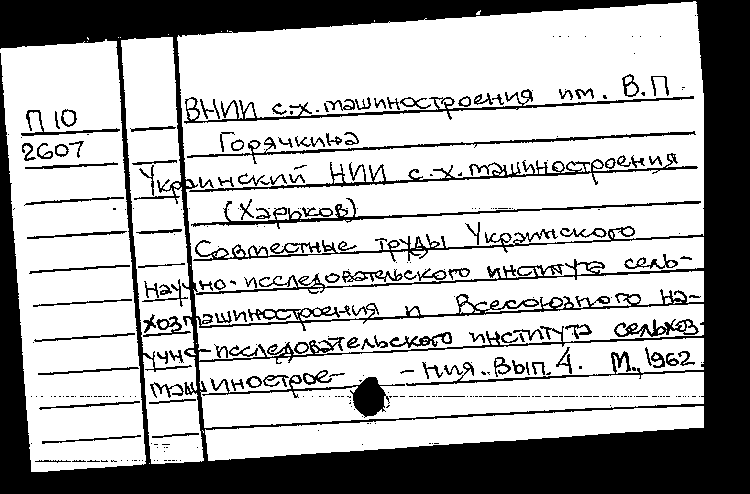 ВНИИ с.-х. машиностроения им. В.П.
П 10
Горячкина
2607
Украинский НИИ с.-х. машиностроения
(Харьков)
Совместные труды Украинского
научно-исследовательского института сель-
хозмашиностроения и Всесоюзного на-
учно-исследовательского института сельхоз-
машинострое- -ния. Вып. 4. М., 1962.